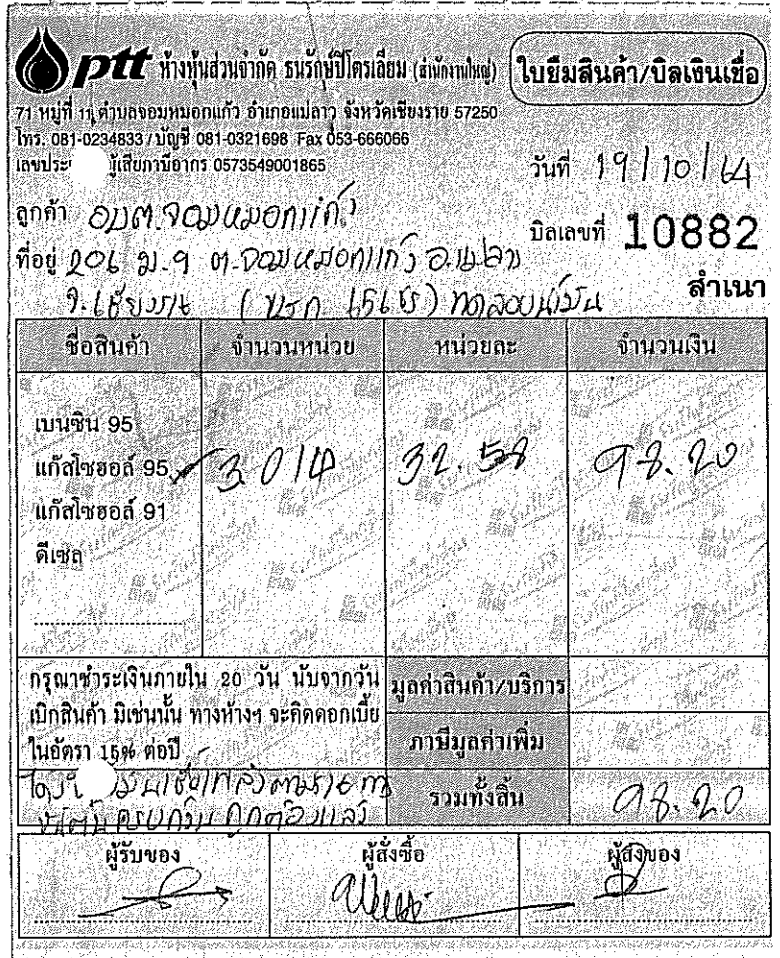 ptt ห้างหุ้นส่วนจำกัด ธนรักษ์ปิโตรเลียม (สำนักงานใหญ่)
ใบยืมสินค้า/บิลเงินเชื่อ
71 หมู่ที่ 11 ตำบลจอมหมอกแก้ว อำเภอแม่ลาว จังหวัดเชียงราย 57250
โทร. 081-0234833 / บัญชี 081-0321698 Fax 053-666066
เลขประ ผู้เสียภาษีอากร 0573549001865
วันที่ 19/10/64
ลูกค้า อบต.จอมหมอกแก้ว
บิลเลขที่ 10882
ที่อยู่ 206 ม.9 ต.จอมหมอกแก้ว อ.แม่ลาว
สำเนา
จ.เชียงราย ทดลองน้ำมัน
ชื่อสินค้า จำนวนหน่วย หน่วยละ จำนวนเงิน
เบนซิน 95
แก๊สโซฮอล์ 95 3.014 32.58 98.20
แก๊สโซฮอล์ 91
ดีเซล
กรุณาชำระเงินภายใน 20 วัน นับจากวัน
เบิกสินค้า มิเช่นนั้น ทางห้างฯ จะคิดดอกเบี้ย
ในอัตรา 15% ต่อปี
มูลค่าสินค้า/บริการ
ภาษีมูลค่าเพิ่ม
รวมทั้งสิ้น 98.20
ครบถ้วน ถูกต้องแล้ว
ผู้รับของ ผู้สั่งซื้อ ผู้ส่งของ